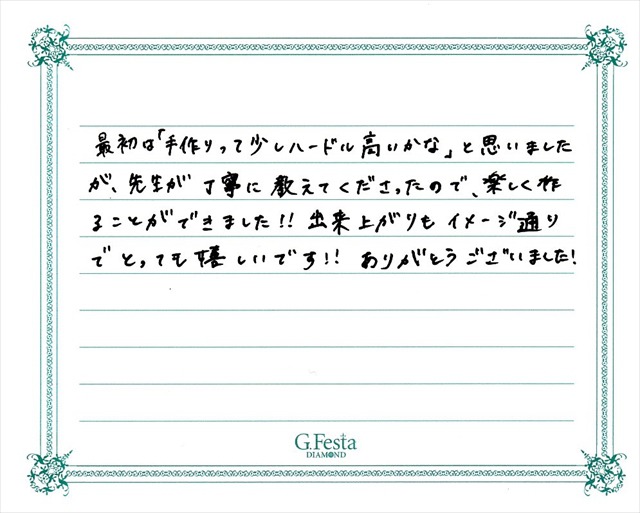 最初は「手作りって少しハードル高いかな」と思いました
が、先生が丁寧に教えてくださったので、楽しく作
ることができました!! 出来上がりもイメージ通り
でとっても嬉しいです!! ありがとうございました!
G.Festa
DIAMOND